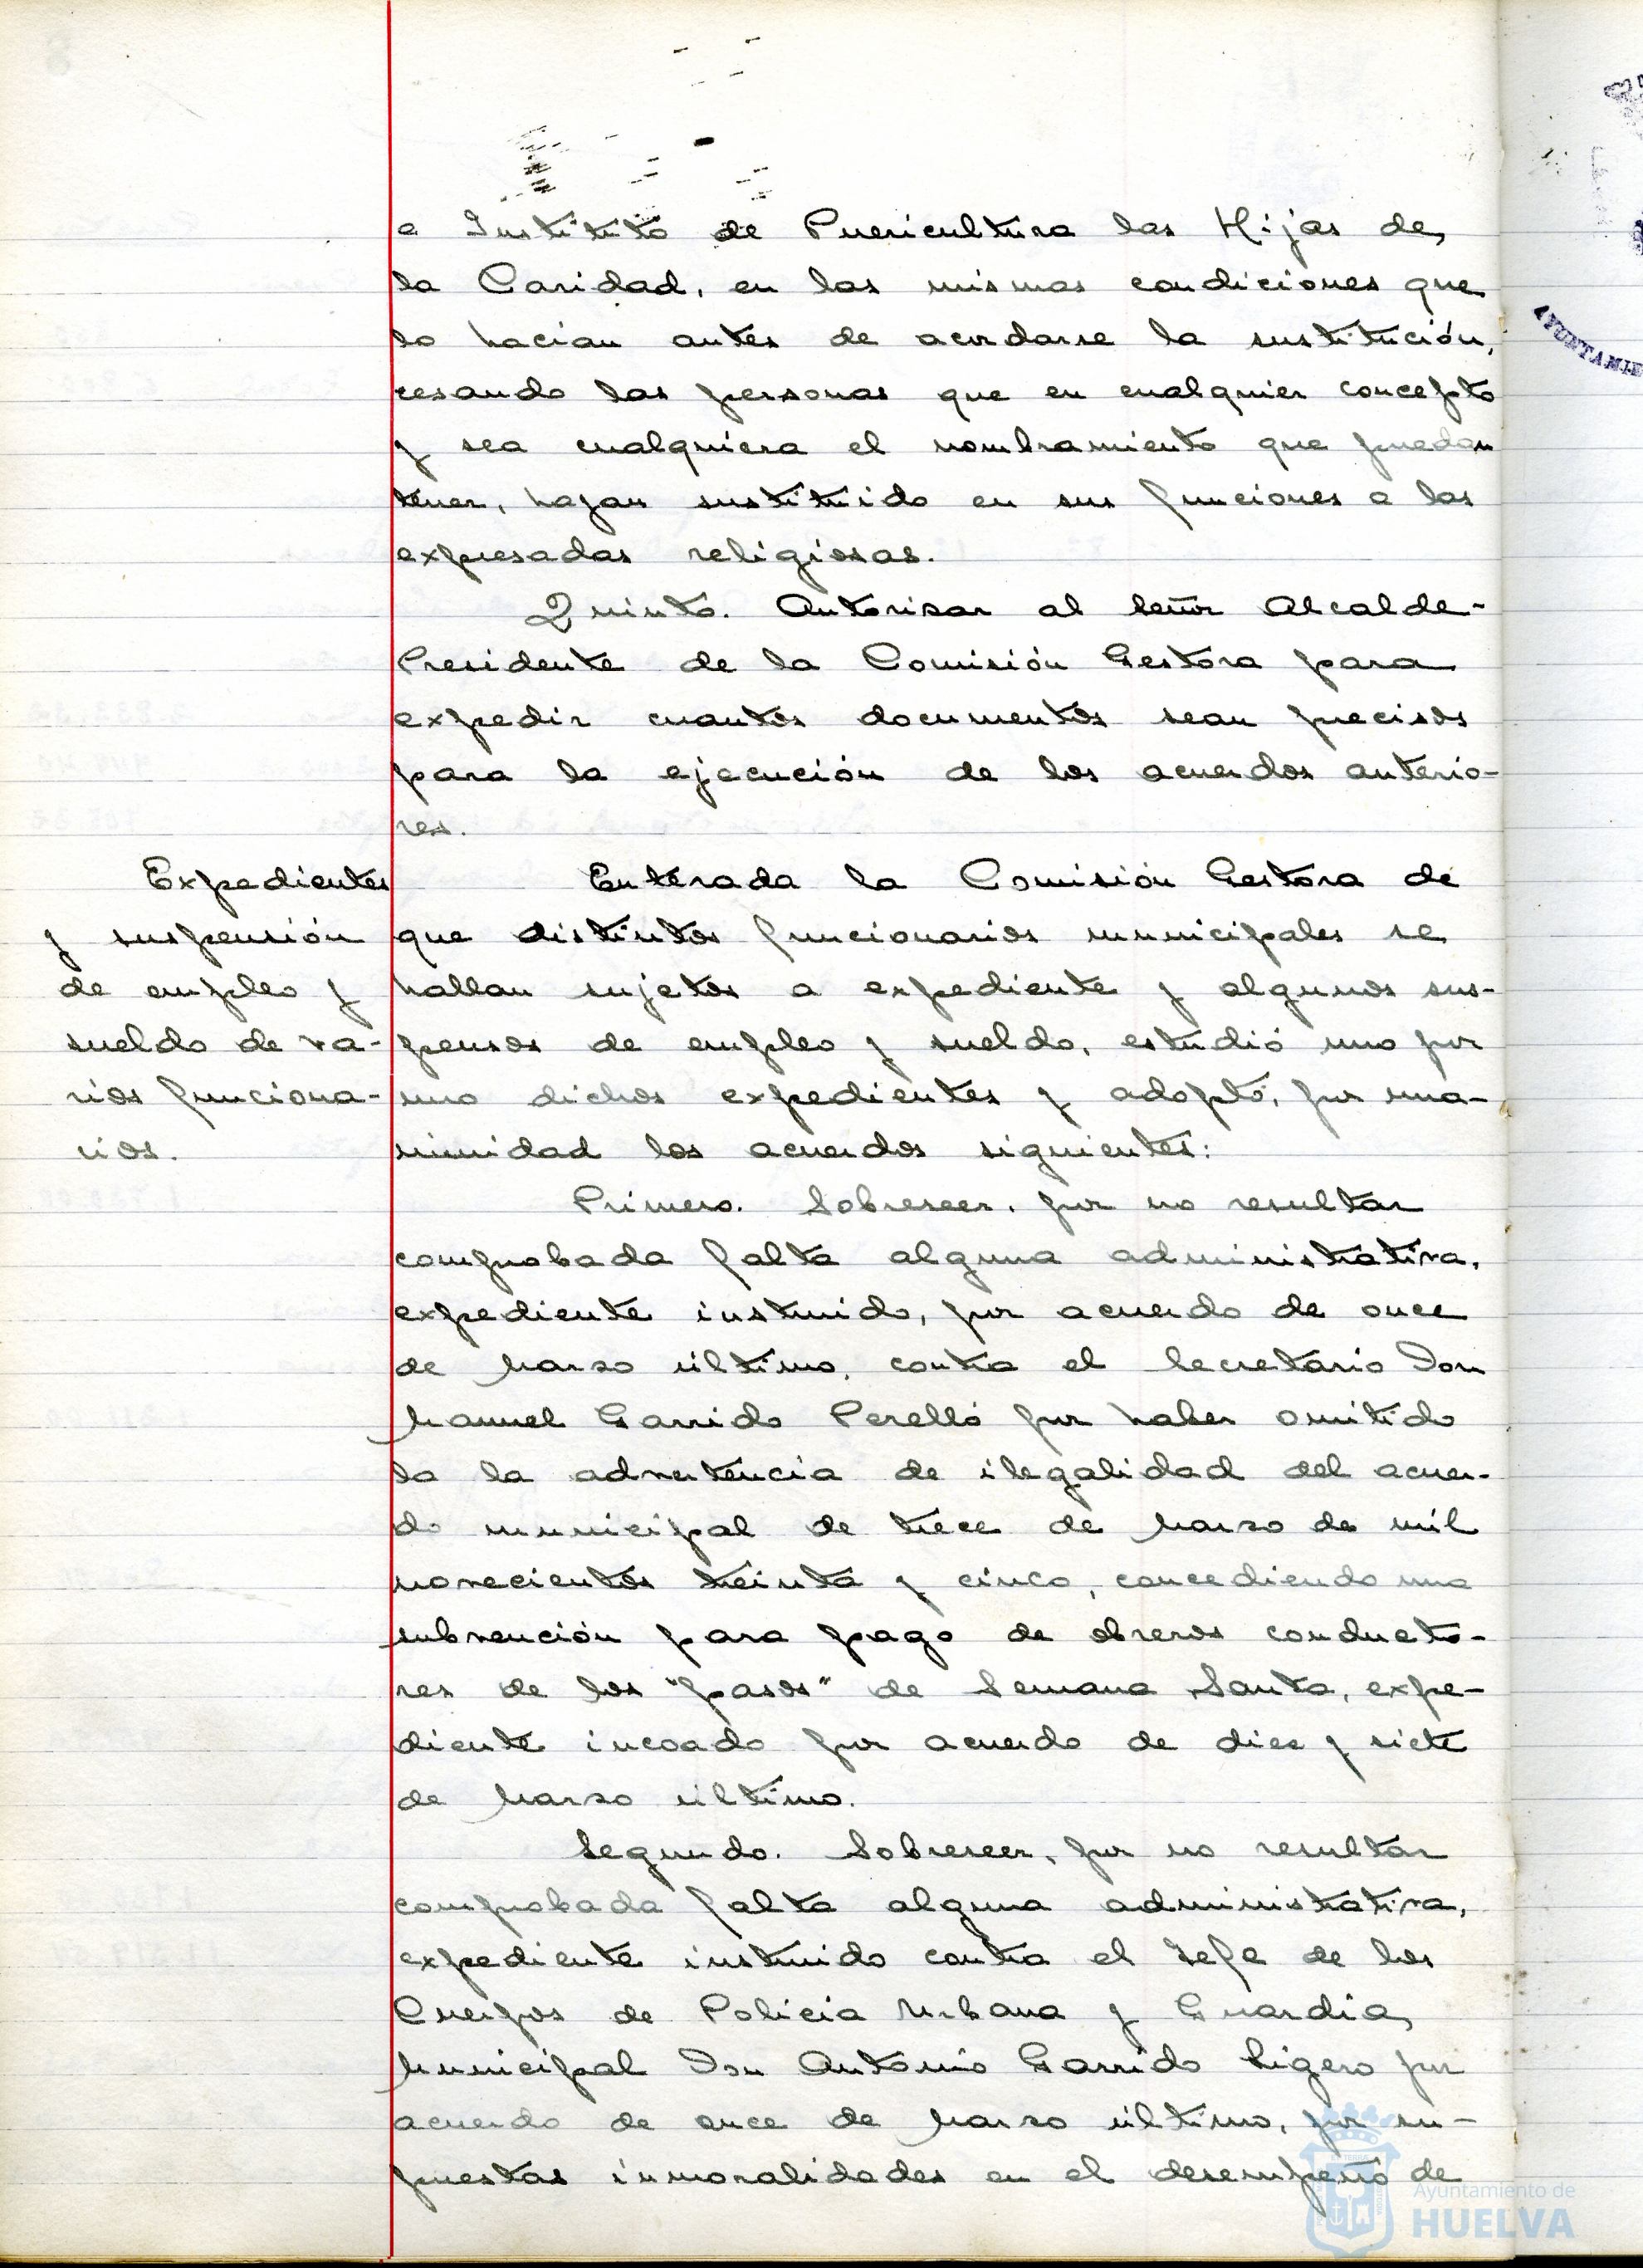 e Instituto de Puericultura las Hijas de
la Caridad, en las mismas condiciones que
lo hacian antes de acordarse la sustitución,
cesando las personas que en cualquier concepto
y sea cualquiera el nombramiento que puedan
tener, hayan sustituido en sus funciones a las
expresadas religiosas.
Quinto. Autorizar al Señor Alcalde-
Presidente de la Comisión Gestora para
expedir cuantos documentos sean precisos
para la ejecución de los acuerdos anterio-
res.
Expedientes
y suspensión
de empleo y
sueldo de va-
rios funciona-
rios.
Enterada la Comisión Gestora de
que distintos funcionarios municipales se
hallan sujetos a expediente y algunos sus-
pensos de empleo y sueldo, estudió uno por
uno dichos expedientes y adoptó, por una-
nimidad los acuerdos siguientes:
Primero. Sobreseer, por no resultar
comprobada falta alguna administrativa,
expediente instruido, por acuerdo de once
de Marzo último, contra el Secretario Don
Manuel Garrido Perelló por haber omitido
la la advertencia de ilegalidad del acuer-
do municipal de trece de Marzo de mil
novecientos treinta y cinco, concediendo una
subvención para pago de obreros conducto-
res de los "pasos" de Semana Santa, expe-
diente incoado por acuerdo de diez y siete
de Marzo último.
Segundo. Sobreseer, por no resultar
comprobada falta alguna administrativa,
expediente instruido contra el Jefe de los
Cuerpos de Policia Urbana y Guardia
Municipal Don Antonio Garrido Ligero por
acuerdo de once de Marzo último, por su-
puestas inmoralidades en el desempeño de
AYUNTAMIE
Ayuntamiento de
HUELVA